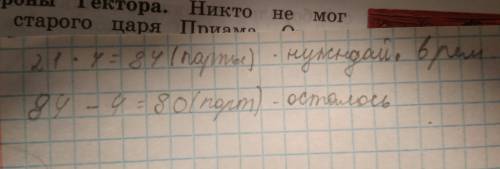 роны Гектора. Никто не мог
старого царя Приама. О
21 · 4 = 84 (парты) - нуждай. в рем
84 - 4 = 80 (парт) - осталось